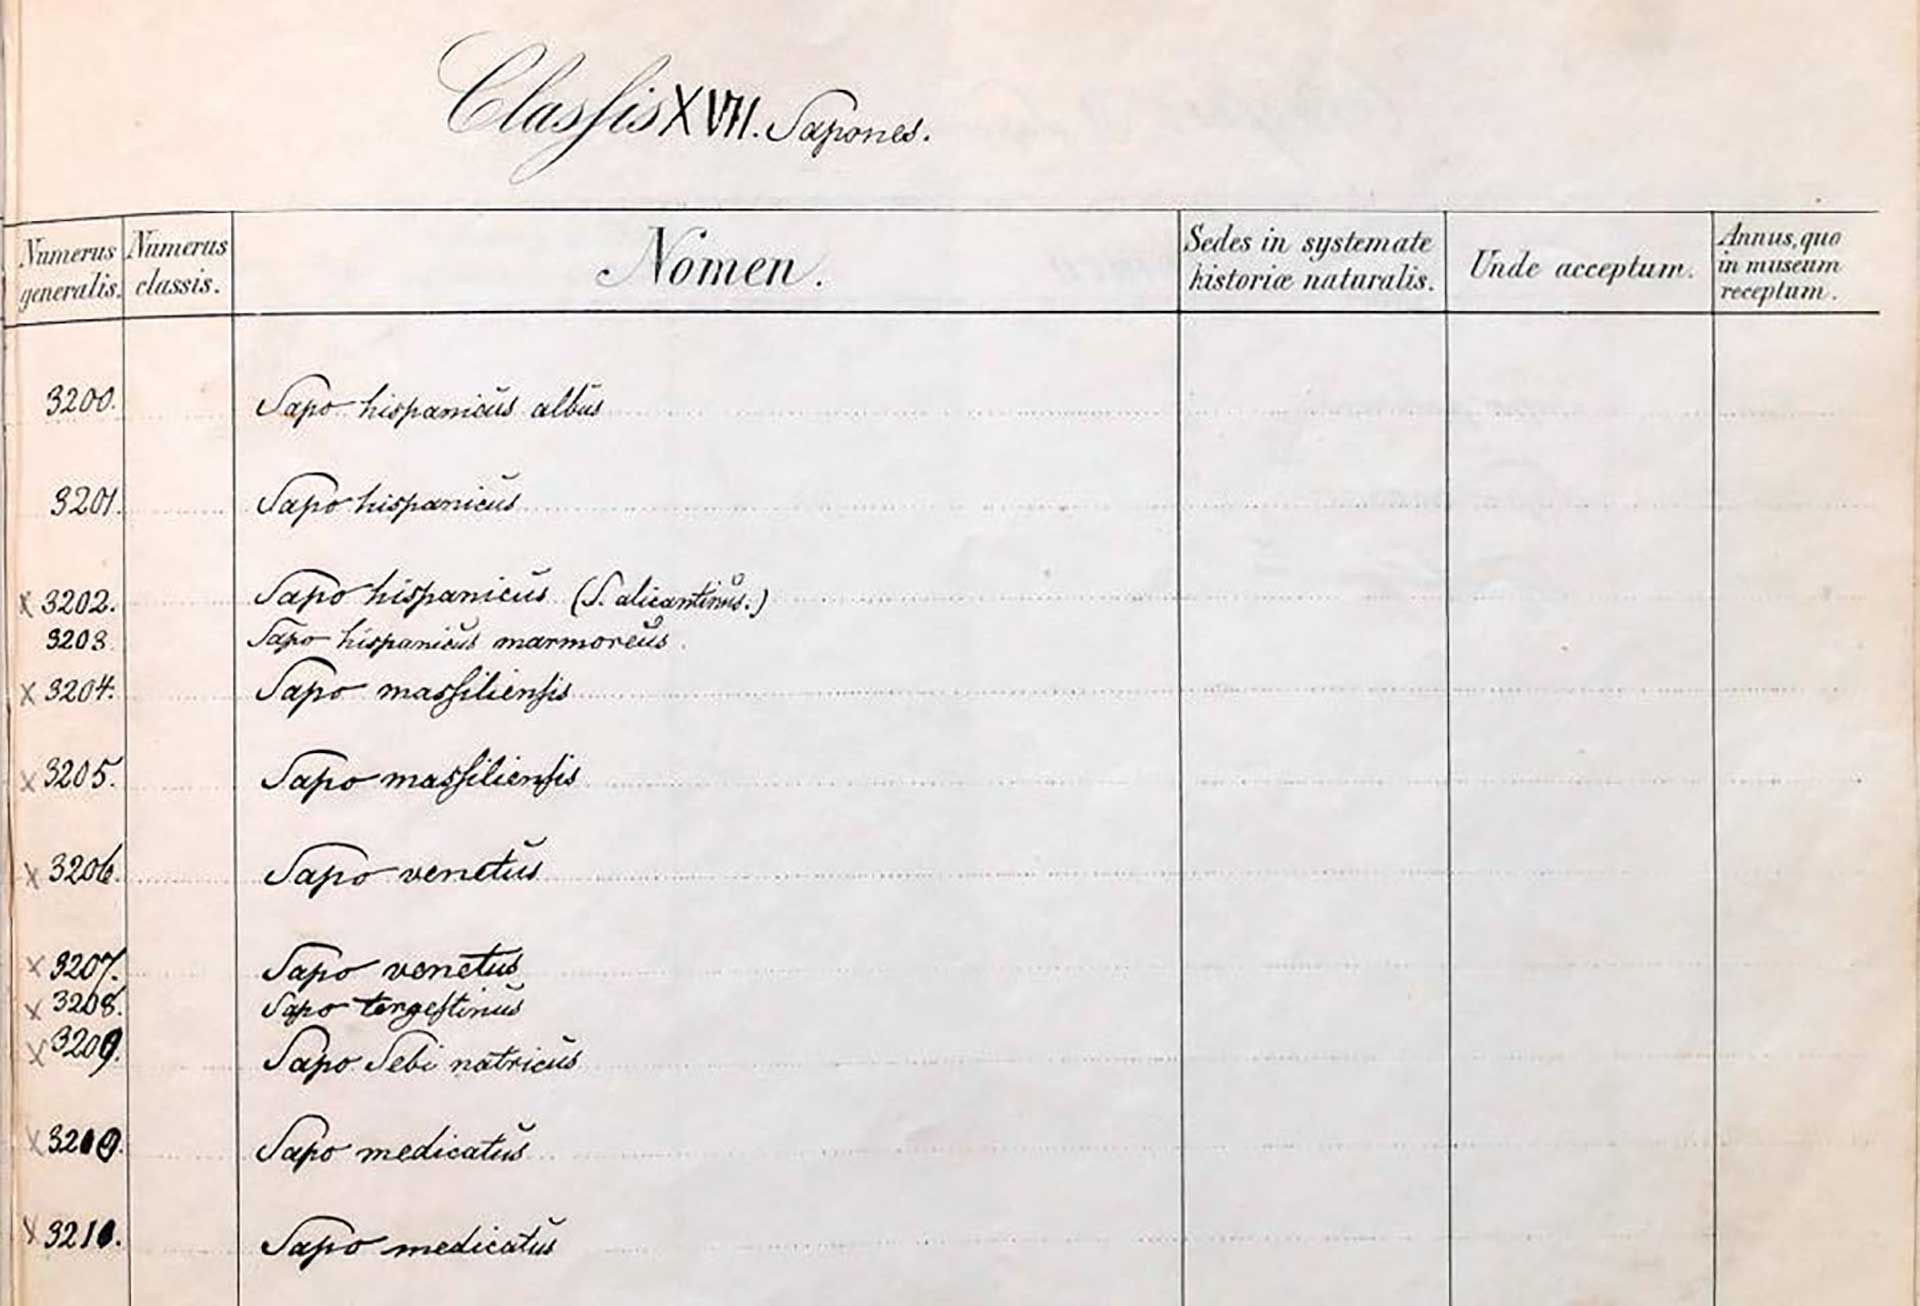 Classis XVII. Sapones.
Numerus generalis. Numerus classis. Nomen. Sedes in systemate historiæ naturalis. Unde acceptum. Annus, quo in museum receptum.
3200. Sapo hispanicŭs albŭs
3201. Sapo hispanicŭs
x 3202. Sapo hispanicŭs (S. alicantinŭs.)
3203. Sapo hispanicŭs marmoreŭs.
x 3204. Sapo massiliensis
x 3205. Sapo massiliensis
x 3206. Sapo venetŭs
x 3207. Sapo venetŭs
x 3208. Sapo tergestinŭs
x 3209. Sapo Sebi natricŭs
x 3210. Sapo medicatŭs
x 3211. Sapo medicatŭs